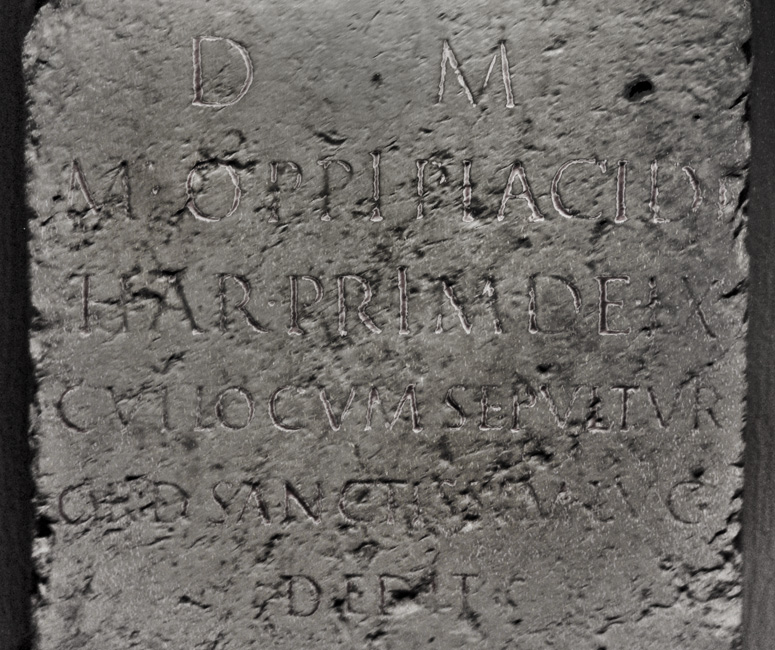 D M
M · OPPI PLACIDI
HAR · PRIM DE LX
CVI LOCVM SEPVLTVR
ORD SANCTISSIM LVG
DEDIT